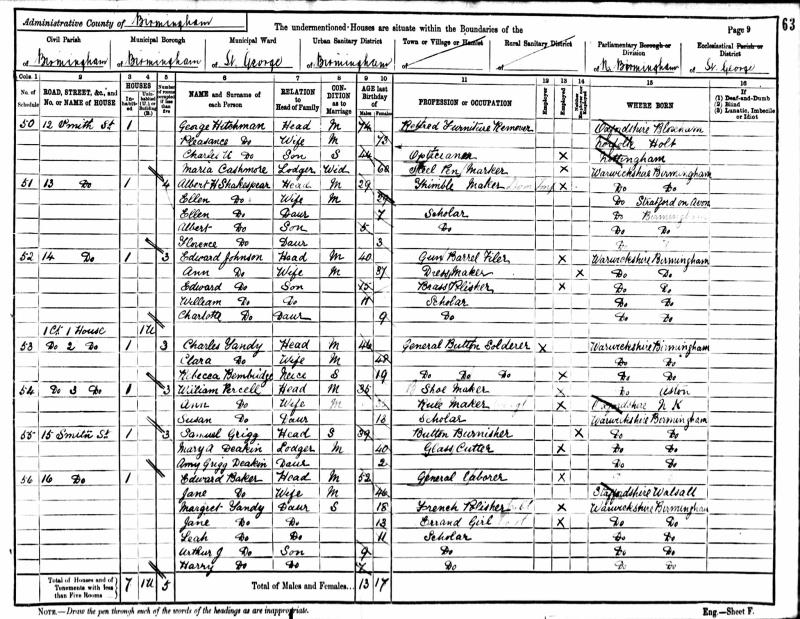 Administrative County of Birmingham
The undermentioned Houses are situate within the Boundaries of the
Page 9
63
Civil Parish
Municipal Borough
Municipal Ward
Urban Sanitary District
Town or Village or Hamlet
Rural Sanitary District
Parliamentary Borough or Division
Ecclesiastical Parish or District
of Birmingham
of Birmingham
of St. George
of Birmingham
of
of
of N. Birmingham
of St. George
Cols. 1 2 3 4 5 6 7 8 9 10 11 12 13 14 15 16
No. of Schedule
ROAD, STREET, &c., and No. or NAME of HOUSE
HOUSES
Inhabited
Uninhabited (U.), or Building (B.)
Number of rooms occupied if less than five
NAME and Surname of each Person
RELATION to Head of Family
CONDITION as to Marriage
AGE last Birthday of
Males
Females
PROFESSION or OCCUPATION
Employer
Employed
WHERE BORN
If
(1) Deaf-and-Dumb
(2) Blind
(3) Lunatic, Imbecile or Idiot
50 12 Smith St 1 George Hitchman Head M 74 Retired Furniture Remover Oxfordshire
Pleasance Do Wife M 73 Norfolk Holt
Charles Do Son S 44 X Nottingham
Maria Cashmore Lodger Wid 60 Steel Pen Marker X Warwickshire Birmingham
51 13 Do 1 4 Albert H Shakespear Head M 29 Thimble Maker X Do Do
Ellen Do Wife M 29 Do Stratford on Avon
Ellen Do Daur 7 Scholar Do Birmingham
Albert Do Son 5 Do Do Do
Florence Do Daur 3
52 14 Do 1 3 Edward Johnson Head M 40 Gun Barrel Filer X Warwickshire Birmingham
Ann Do Wife M 37 Dress Maker X Do Do
Edward Do Son 15 Brass X Do Do
William Do Do 11 Scholar Do Do
Charlotte Do Daur 9 Do Do Do
1 Ct 1 House 1U
53 Do 2 Do 1 3 Charles Yandy Head M 46 General Button Solderer X Warwickshire Birmingham
Clara Do Wife M 48 Do Do
Rebecca Bembridge Neice S 19 Do Do Do X Do Do
54 Do 3 Do 1 3 William Percell Head M 35 Shoe Maker X Do Aston
Ann Do Wife M Rule Maker X Oxfordshire N K
Susan Do Daur 13 Scholar Warwickshire Birmingham
55 15 Smith St 1 3 Samuel Grigg Head S 39 Button Burnisher X Do Do
Mary A Deakin Lodger M 40 Glass Cutter X Do Do
Amy Grigg Deakin Daur 2 Do Do
56 16 Do 1 Edward Baker Head M 52 General Laborer X Do Do
Jane Do Wife M 46 Staffordshire Walsall
Margret Yandy Daur S 18 French Polisher X Warwickshire Birmingham
Jane Do Do 13 Errand Girl X Do Do
Leah Do Do 11 Scholar Do Do
Arthur J Do Son 9 Do Do Do
Harry Do Do 7 Do Do Do
Total of Houses and of Tenements with less than Five Rooms 7 1U 5 Total of Males and Females... 13 17
NOTE.—Draw the pen through each of the words of the headings as are inappropriate.
Eng.—Sheet F.